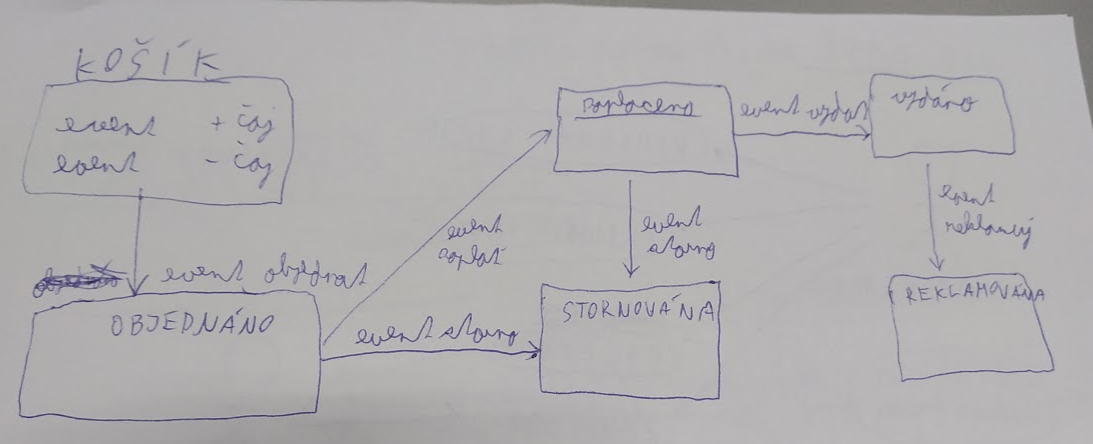 KOŠÍK
event + čaj
event - čaj
event objednat
OBJEDNÁNO
event zaplať
event storno
zaplaceno
event vydat
vydáno
event storno
STORNOVÁNA
event reklamuj
REKLAMOVÁNA